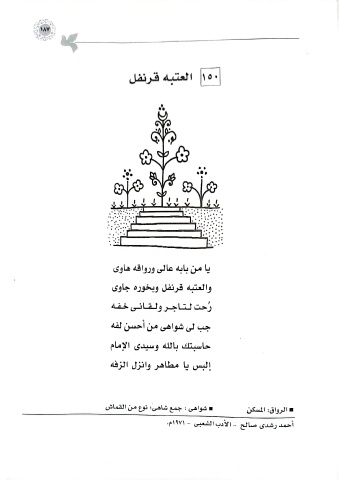 ١٨٧
١٥٠ العتبه قرنفل
يا من بابه عالى ورواقه هاوى
والعتبه قرنفل وبخوره جاوى
رُحت لتاجر ولقانى خفه
جب لى شواهى من أحسن لفه
حاسبتك بالله وسيدى الإمام
إلبس يا مطاهر وانزل الزفه
■ الرواق: المسكن ■ شواهى : جمع شاهى: نوع من القماش
أحمد رشدى صالح - الأدب الشعبى - ١٩٧١م.